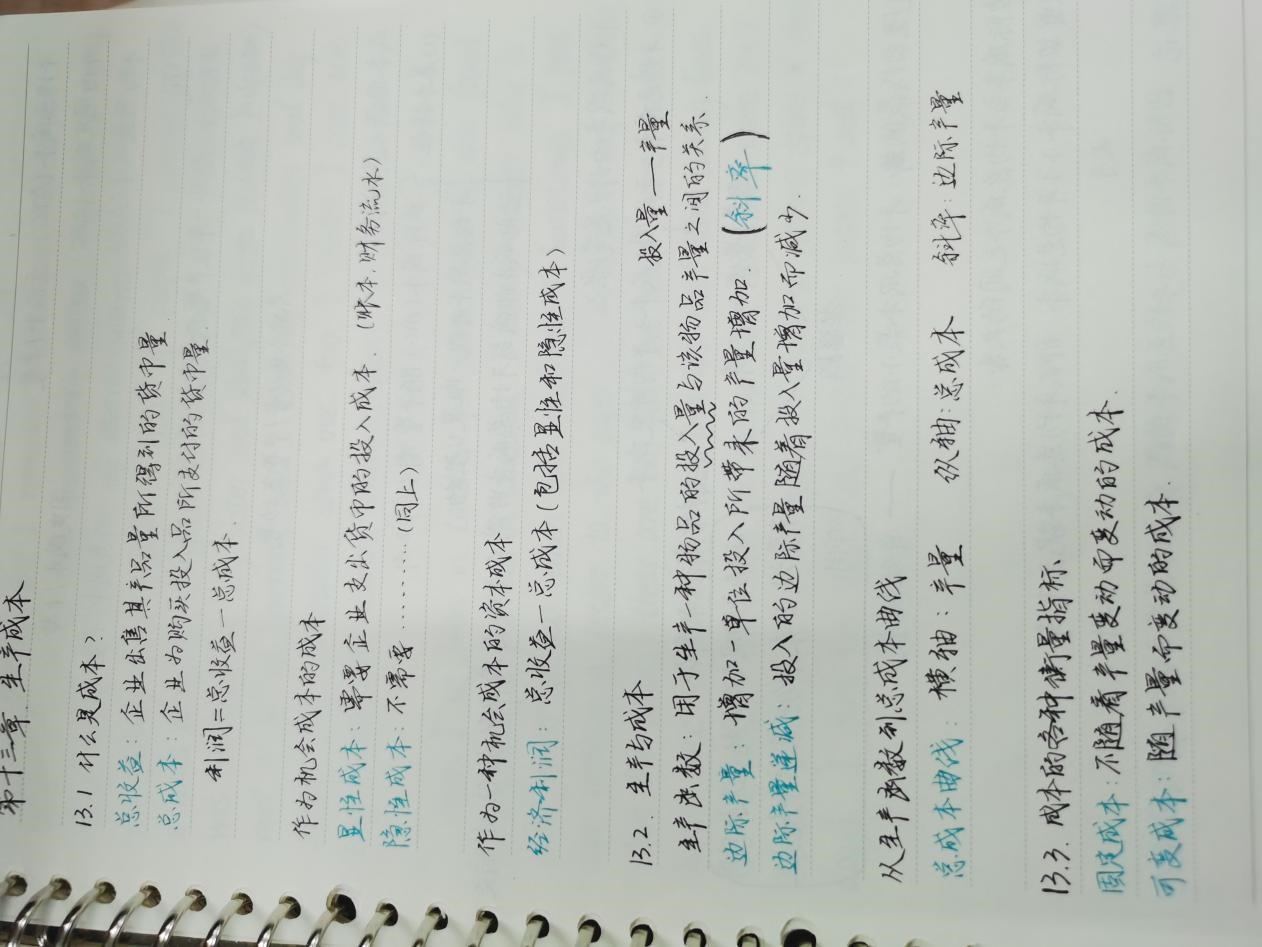 第十三章 生产成本
13.1 什么是成本?
总收益: 企业出售其产品量所得到的货币量
总成本: 企业为购买投入品所支付的货币量
利润=总收益-总成本.
作为机会成本的成本
显性成本: 需要企业支出货币的投入成本. (账本.财务流水)
隐性成本: 不需要………(同上)
作为一种机会成本的资本成本
经济利润: 总收益-总成本(包括显性和隐性成本)
13.2. 生产与成本
投入量—产量
生产函数: 用于生产一种物品的投入量与该物品产量之间的关系.
边际产量: 增加一单位投入所带来的产量增加. (斜率)
边际产量递减: 投入的边际产量随着投入量增加而减少.
从生产函数到总成本曲线
总成本曲线: 横轴: 产量 纵轴: 总成本 斜率: 边际产量
13.3. 成本的各种衡量指标
固定成本: 不随着产量变动而变动的成本.
可变成本: 随产量而变动的成本.